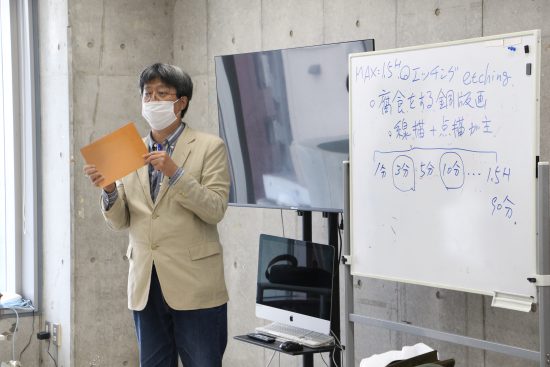 MAX=1.5H ②エッチング etching
。腐食をする銅版画
。線描+点描が主
1分 3分 5分 10分 … 1.5H
90分